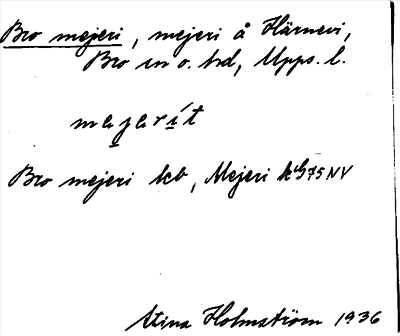 Bro mejeri, mejeri å Härnevi,
Bro sn o. hd, Upps. l.
mejerít
Bro mejeri kb, Mejeri 75 NV
Stina Holmström 1936